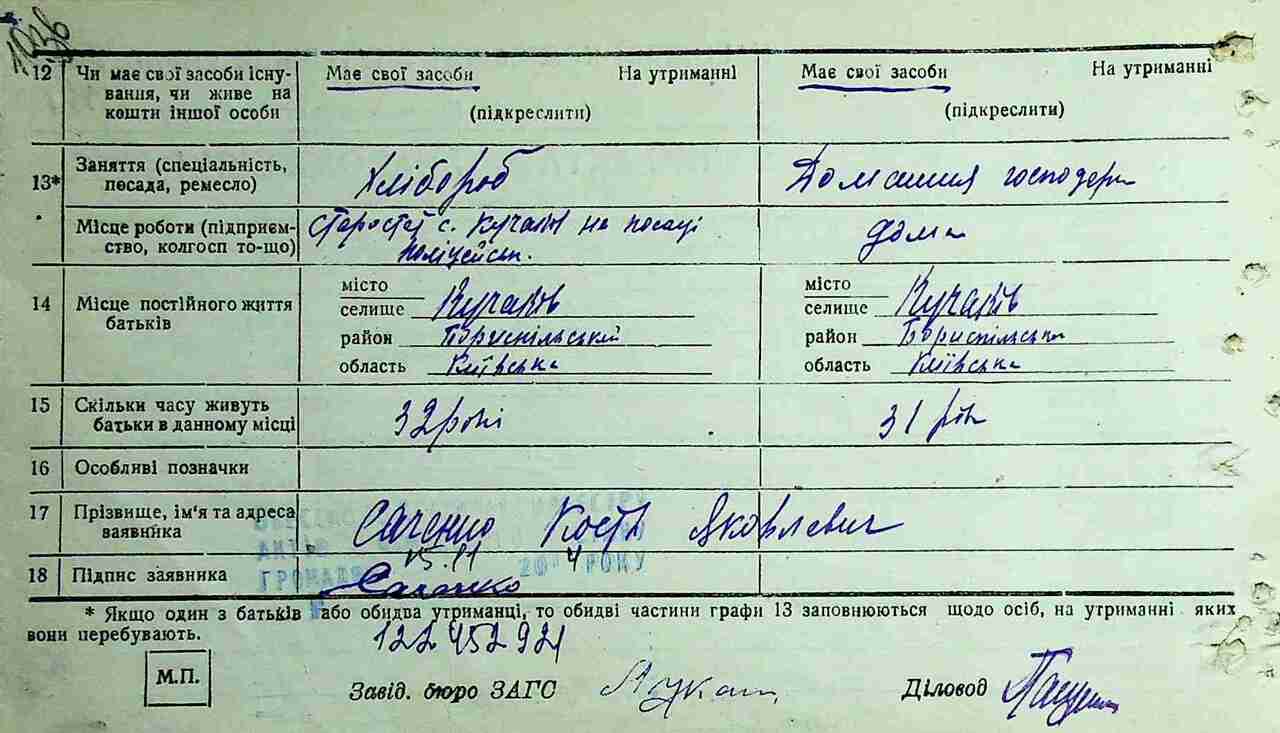 1936
12 Чи має свої засоби існу- Має свої засоби На утриманні Має свої засоби На утриманні
вання, чи живе на
кошти іншої особи (підкреслити) (підкреслити)
13* Заняття (спеціальність, Хлібороб Домашня господарк
посада, ремесло)
Місце роботи (підприєм- Старостат с. Кучаків на посаді дома
ство, колгосп то-що) поліцейськ.
14 Місце постійного життя місто місто
батьків селище Кучаків селище Кучаків
район Бориспільський район Бориспільськ
область Київська область Київська
15 Скільки часу живуть 32 роки 31 рік
батьки в данному місці
16 Особливі позначки
17 Прізвище, ім'я та адреса Саченко Кость Яковлевич
заявника
15.11 20 4 РОКУ
ГРОМАДЯ
18 Підпис заявника Саченко
* Якщо один з батьків або обидва утриманці, то обидві частини графи 13 заповнюються щодо осіб, на утриманні яких
вони перебувають.
122452921
М.П. Завід. бюро ЗАГС Діловод